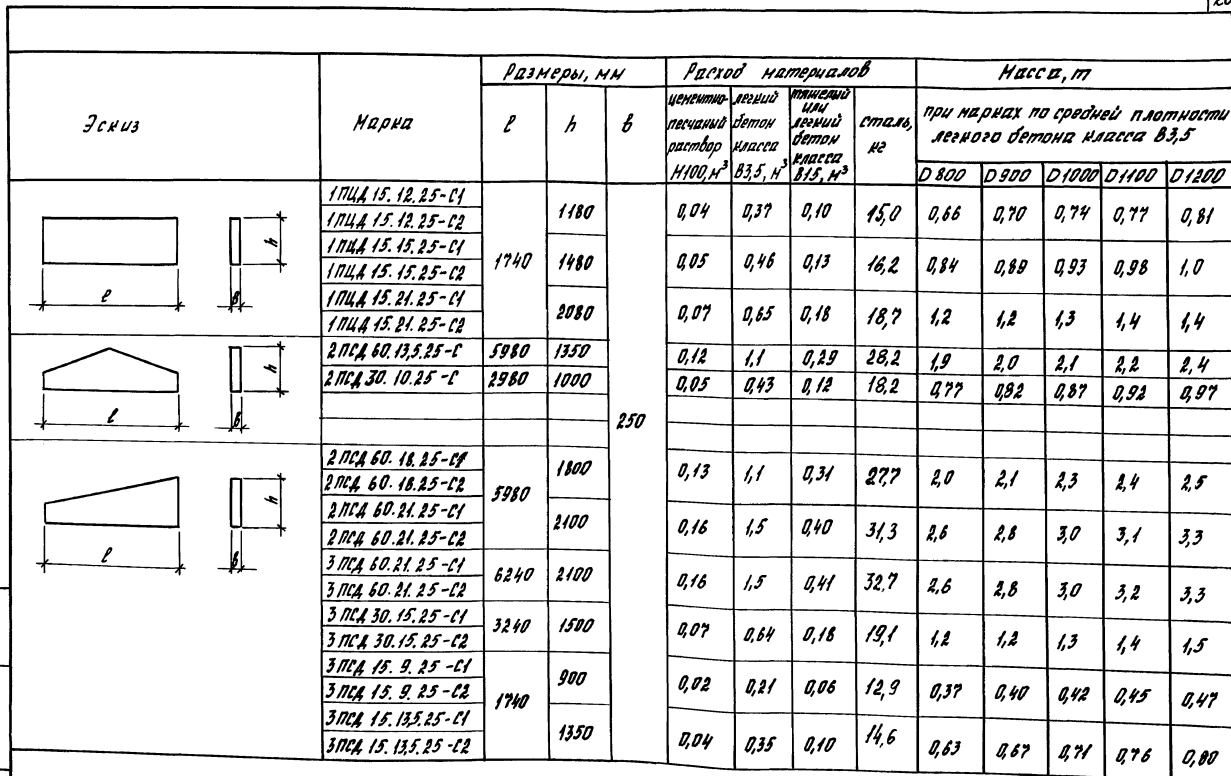 Эскиз | Марка | Размеры, мм | Расход материалов | Масса, т
ℓ | h | в | цементно-песчаный раствор М100, м³ | легкий бетон класса В3,5, м³ | тяжелый или легкий бетон класса В15, м³ | сталь, кг | при марках по средней плотности легкого бетона класса В3,5
D 800 | D 900 | D 1000 | D 1100 | D 1200
1 ПЦД 15.12.25-С1 | 1740 | 1180 | 250 | 0,04 | 0,37 | 0,10 | 15,0 | 0,66 | 0,70 | 0,74 | 0,77 | 0,81
1 ПЦД 15.12.25-С2
1 ПЦД 15.15.25-С1 | 1480 | 0,05 | 0,46 | 0,13 | 16,2 | 0,84 | 0,89 | 0,93 | 0,98 | 1,0
1 ПЦД 15.15.25-С2
1 ПЦД 15.21.25-С1 | 2080 | 0,07 | 0,65 | 0,18 | 18,7 | 1,2 | 1,2 | 1,3 | 1,4 | 1,4
1 ПЦД 15.21.25-С2
ℓ в h
2 ПСД 60.13,5.25-С | 5980 | 1350 | 0,12 | 1,1 | 0,29 | 28,2 | 1,9 | 2,0 | 2,1 | 2,2 | 2,4
2 ПСД 30.10.25-С | 2980 | 1000 | 0,05 | 0,43 | 0,12 | 18,2 | 0,77 | 0,82 | 0,87 | 0,92 | 0,97
ℓ в h
2 ПСД 60.18.25-С1 | 5980 | 1800 | 0,13 | 1,1 | 0,31 | 27,7 | 2,0 | 2,1 | 2,3 | 2,4 | 2,5
2 ПСД 60.18.25-С2
2 ПСД 60.21.25-С1 | 2100 | 0,16 | 1,5 | 0,40 | 31,3 | 2,6 | 2,8 | 3,0 | 3,1 | 3,3
2 ПСД 60.21.25-С2
3 ПСД 60.21.25-С1 | 6240 | 2100 | 0,16 | 1,5 | 0,41 | 32,7 | 2,6 | 2,8 | 3,0 | 3,2 | 3,3
3 ПСД 60.21.25-С2
3 ПСД 30.15.25-С1 | 3240 | 1500 | 0,07 | 0,64 | 0,18 | 19,1 | 1,2 | 1,2 | 1,3 | 1,4 | 1,5
3 ПСД 30.15.25-С2
3 ПСД 15.9.25-С1 | 1740 | 900 | 0,02 | 0,21 | 0,06 | 12,9 | 0,37 | 0,40 | 0,42 | 0,45 | 0,47
3 ПСД 15.9.25-С2
3 ПСД 15.13,5.25-С1 | 1350 | 0,04 | 0,35 | 0,10 | 14,6 | 0,63 | 0,67 | 0,71 | 0,76 | 0,80
3 ПСД 15.13,5.25-С2
ℓ в h